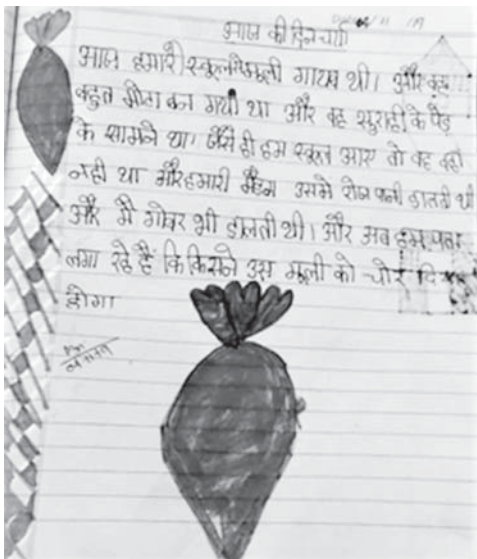 आज की दिनचर्या
आज हमारे स्कूल मूली गायब थी। और वह
बहुत मोटा बन गयी था और वह सुराही के पेड़
के सामने था। जैसे ही हम स्कूल आए तो वह वहाँ
नही था और हमारी मैडम उसमे रोज पानी डालती थी
और मै गोबर भी डालती थी। और अब हम पता
लगा रहे हैं कि किसने उस मूली को चोर
होगा